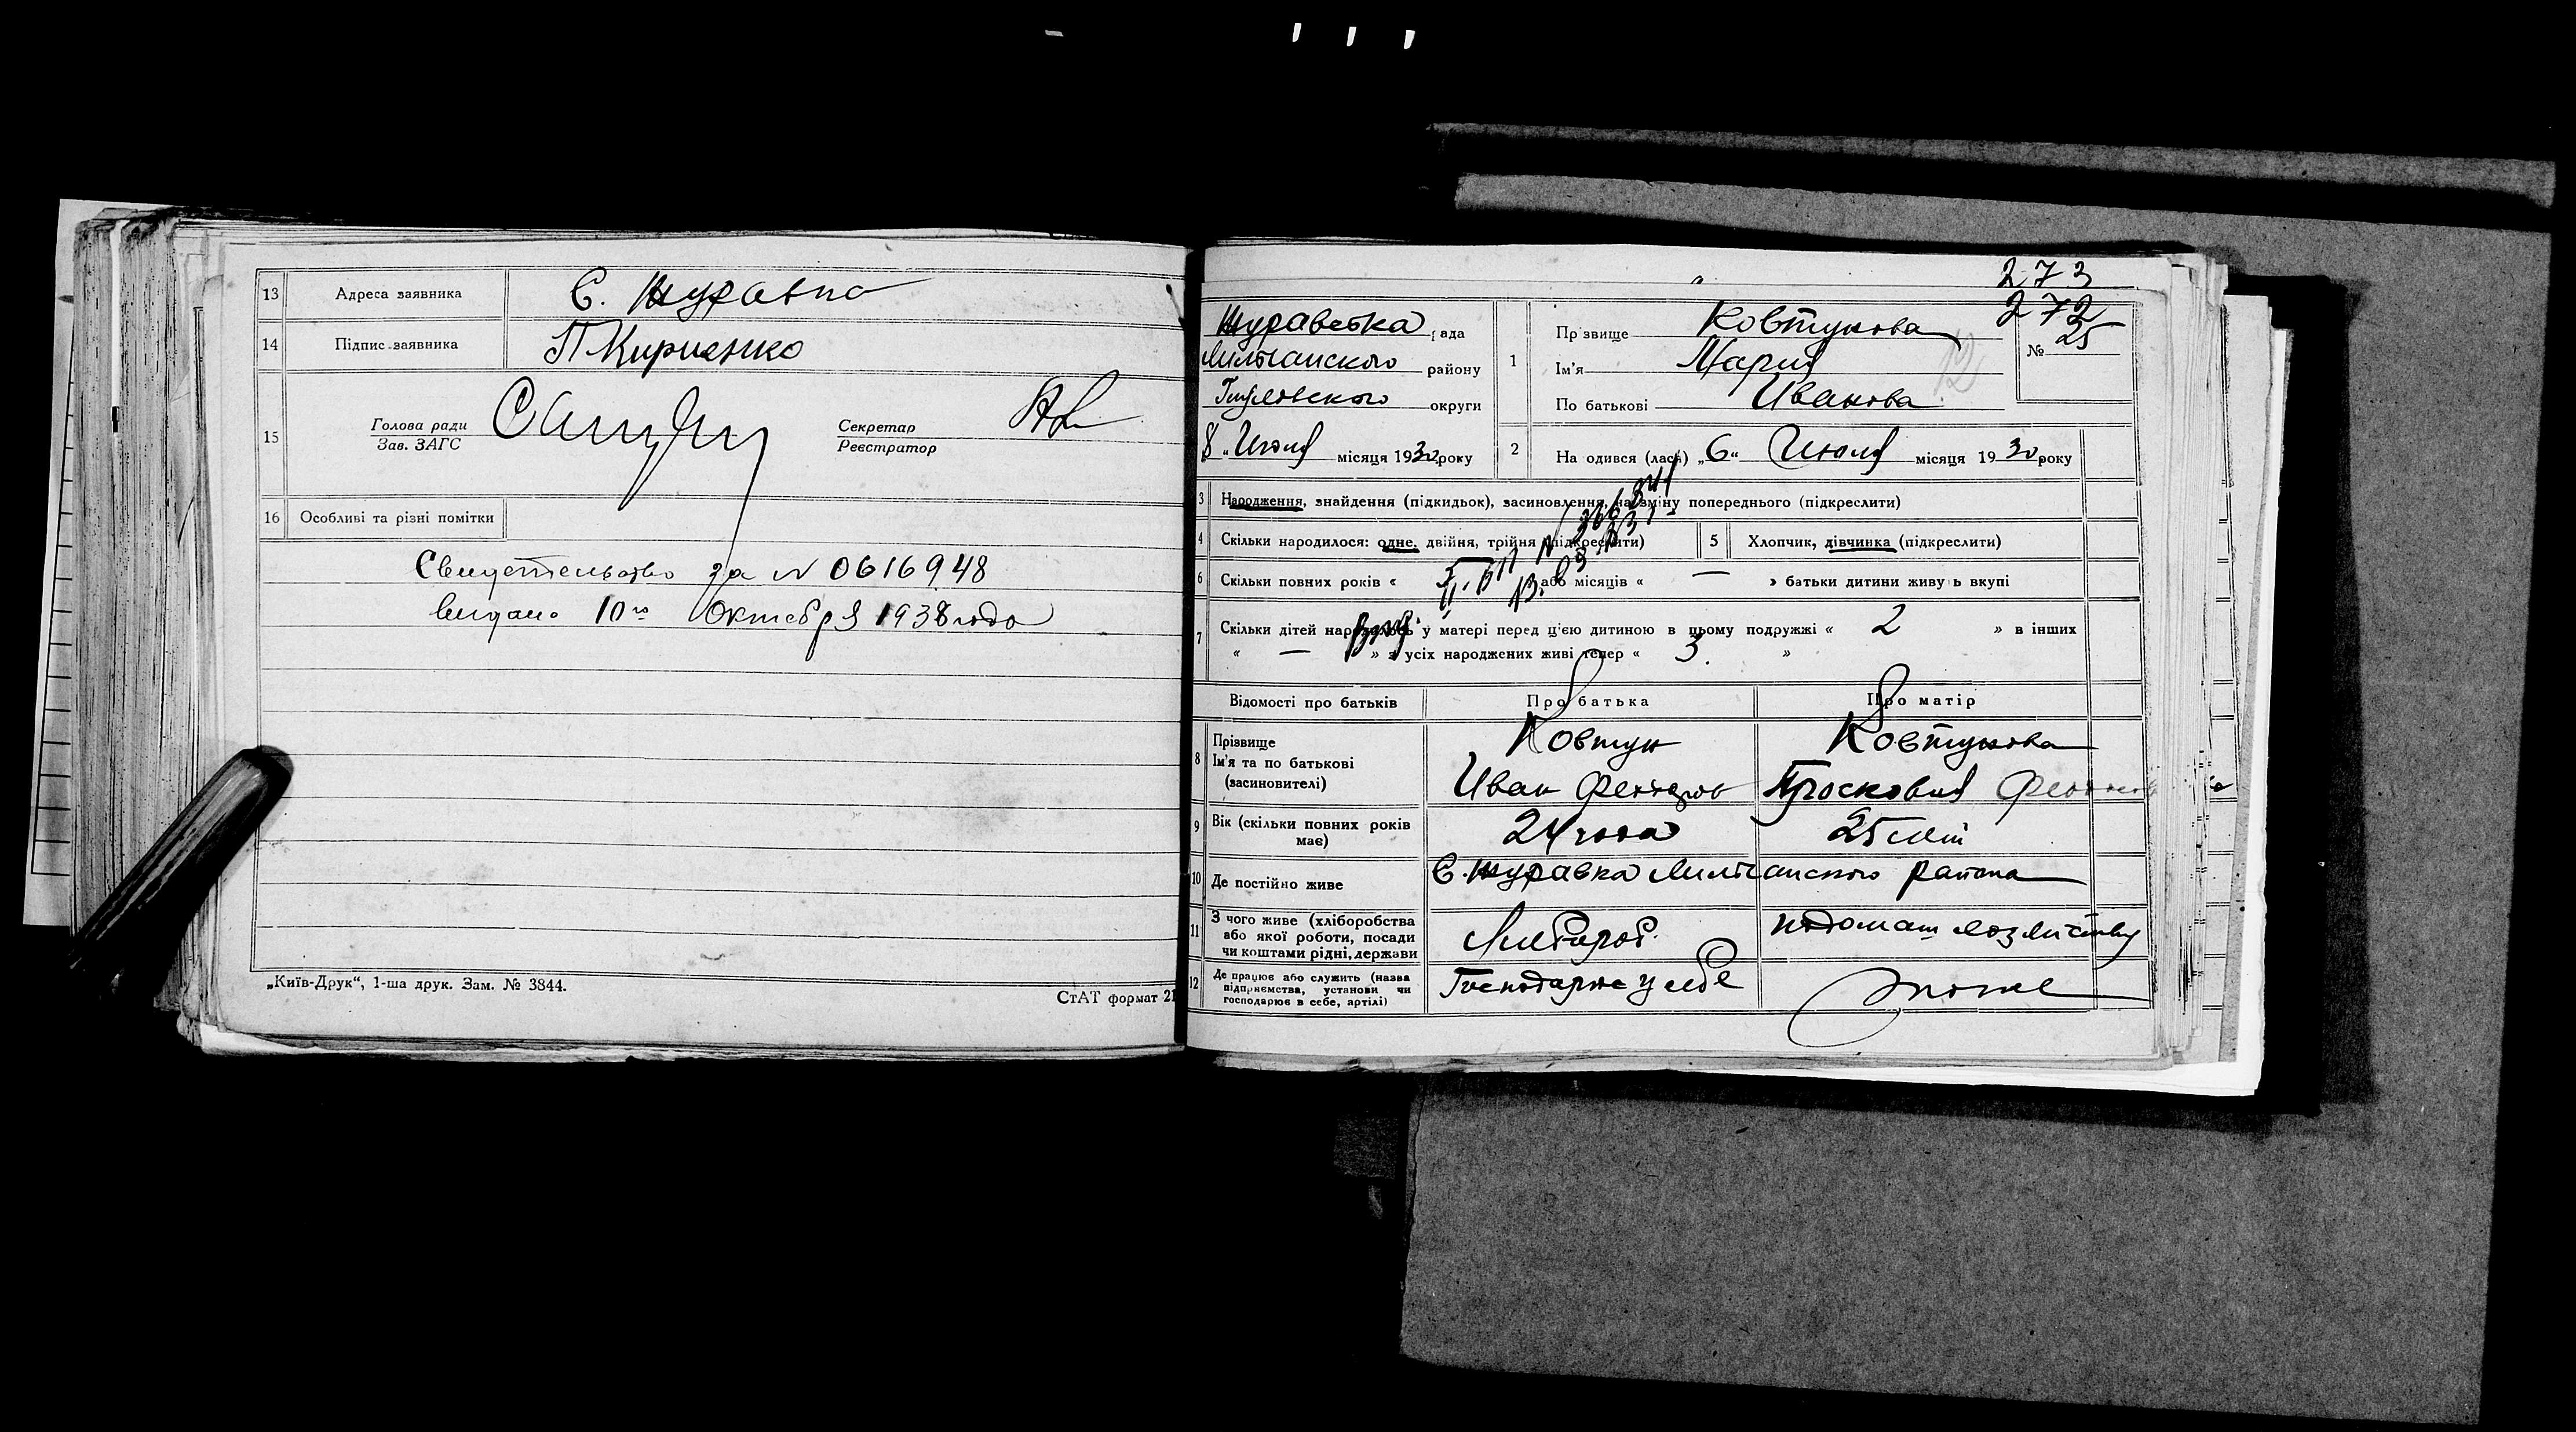 13 Адреса заявника С. Журавка
14 Підпис заявника П Кириенко
15 Голова ради
Зав. ЗАГС
Секретар
Реєстратор
16 Особливі та різні помітки
Свидетельство за N 0616948
видано 10го Октября 1938 года
„Київ-Друк“, 1-ша друк. Зам. № 3844.
СтАТ формат 21
273
272
Журавська рада
району
округи
8 „Июля місяця 1930 року
1 Прізвище Ковтунова
Ім'я Мария
По батькові Иванова
№ 25
2 На одився (лась) „6“ Июля місяця 19 30 року
3 Народження, знайдення (підкидьок), засиновлення, на зміну попереднього (підкреслити)
4 Скільки народилося: одне, двійня, трійня (підкреслити)
5 Хлопчик, дівчинка (підкреслити)
6 Скільки повних років « або місяців « — » батьки дитини живуь вкупі
7 Скільки дітей народилось у матері перед ц'єю дитиною в цьому подружжі « 2 » в інших
« — » з усіх народжених живі тепер « 3. »
Відомості про батьків Про батька Про матір
8 Прізвище
Ім'я та по батькові
(засновителі)
Ковтун
Иван
Ковтунова
Просковия
9 Вік (скільки повних років
має)
24 года
25 лет
10 Де постійно живе С. Журавка района
11 З чого живе (хліборобства
або якої роботи, посади
чи коштами рідні, держави
Хлебороб.
12 Де працює або служить (назва
підприємства, установи чи
господарює в себе, артілі)
Господарює у себе
тоже